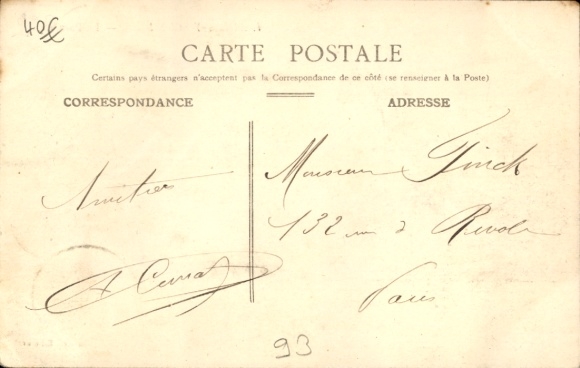 40€
CARTE POSTALE
Certains pays étrangers n'acceptent pas la Correspondance de ce côté (se renseigner à la Poste)
CORRESPONDANCE
ADRESSE
Amitiés
Monsieur Finck
132 rue d Rivoli
Paris
93